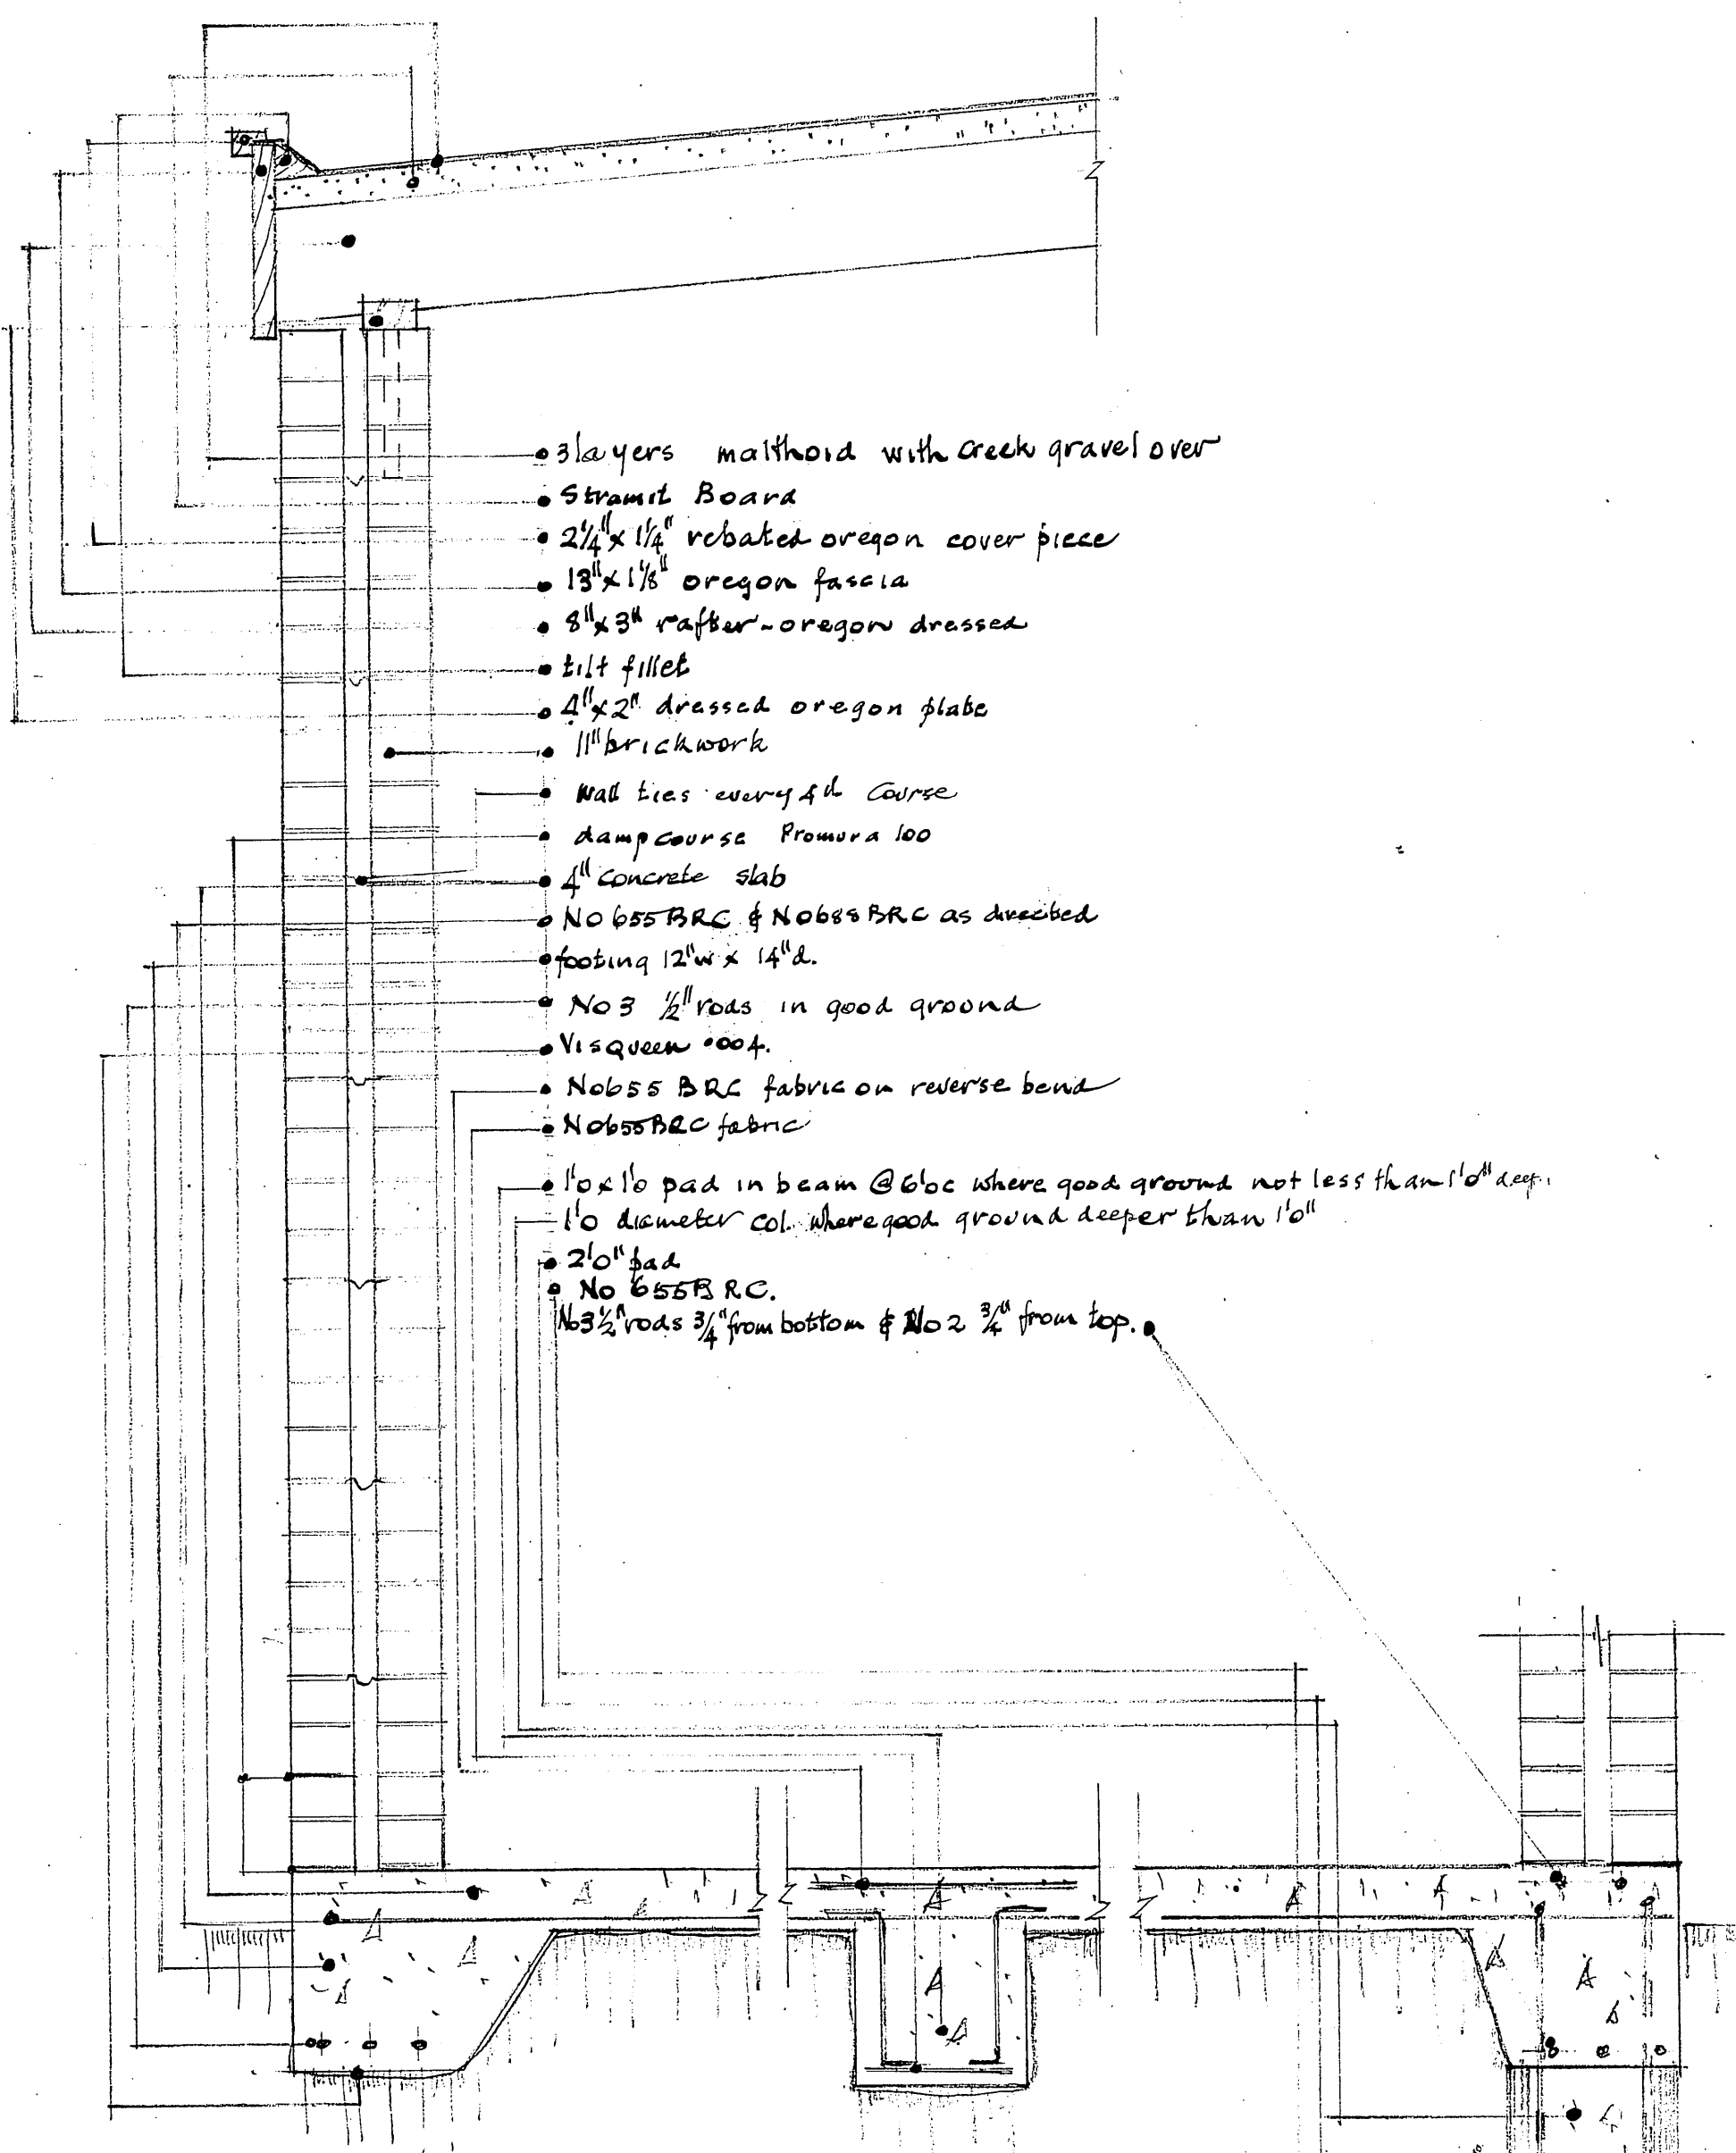 3 layers malthoid with creek gravel over
Stramit Board
2¼" x 1¼" rebated oregon cover piece
13" x 1⅛" oregon fascia
8" x 3" rafter - oregon dressed
tilt fillet
4" x 2" dressed oregon plate
11" brickwork
wall ties every 4th course
damp course Promura 100
4" concrete slab
No 655 BRC & No 688 BRC as directed
footing 12" w x 14" d.
No 3 ½" rods in good ground
Visqueen .004.
No 655 BRC fabric on reverse bend
No 655 BRC fabric
1'0 x 1'0 pad in beam @ 6'0c where good ground not less than 1'0" deep.
1'0 diameter col. where good ground deeper than 1'0"
2'0" pad
No 655 BRC.
No 3 ½" rods ¾" from bottom & No 2 ¾" from top.